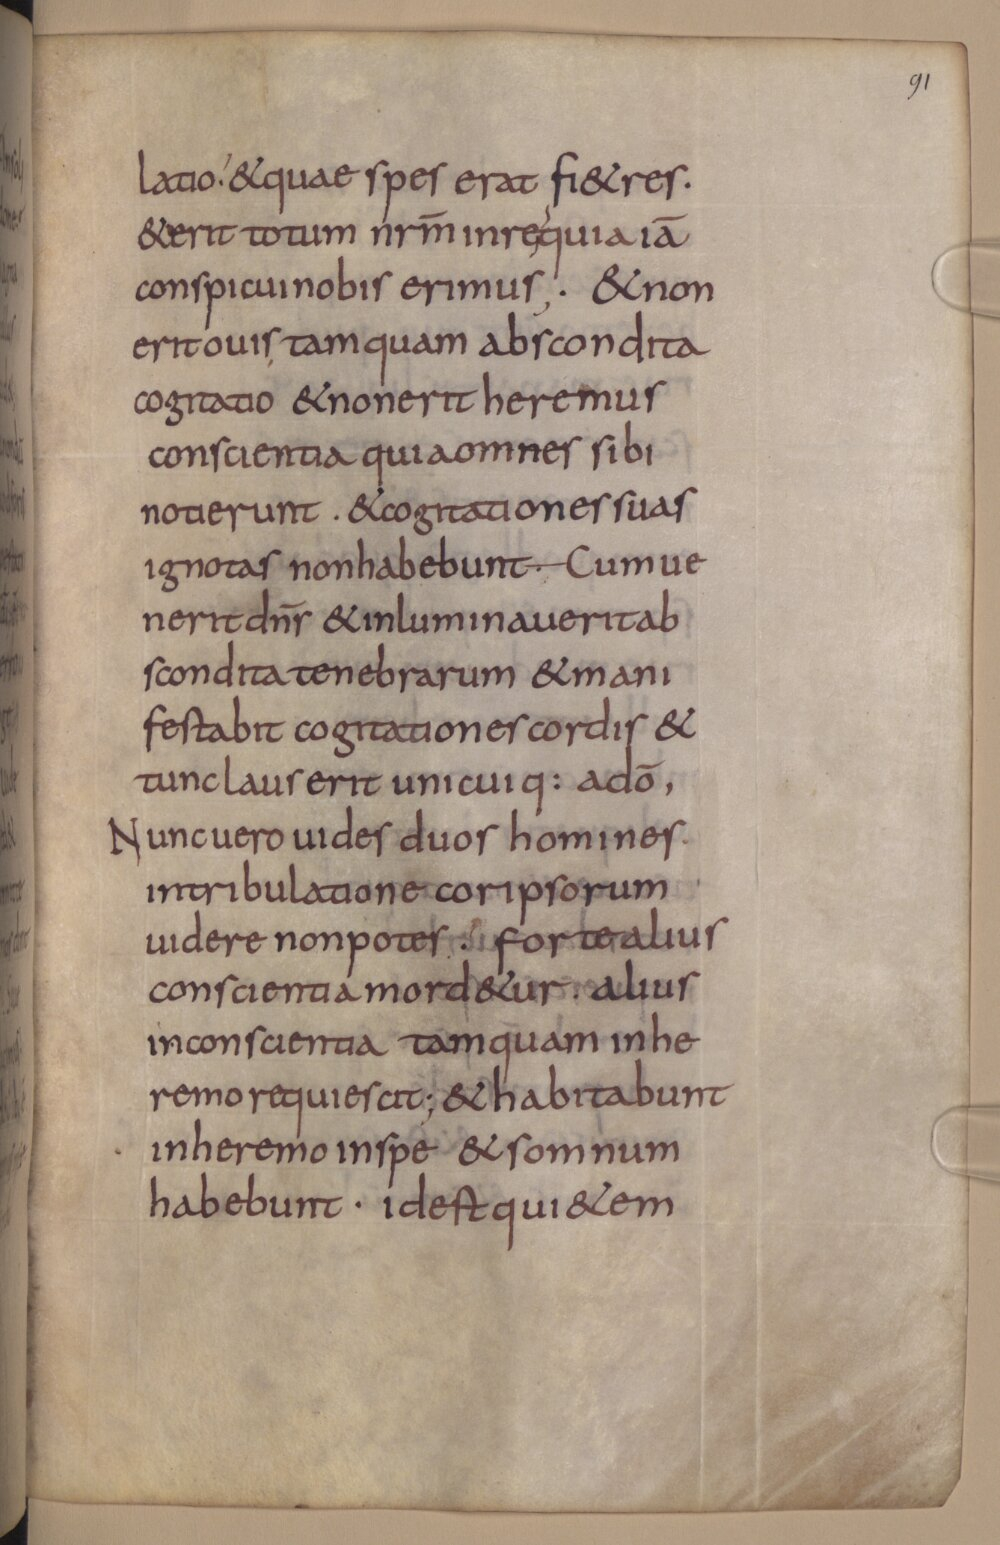 91
latio. &quae spes erat fi&res.
&erit totum nrm̄ inrequia iā
conspicui nobis erimus; . &non
erit ouis tamquam abscondita
cogitatio &nonerit heremus
conscientia quia omnes sibi
notierunt . &cogitationes suas
ignotas non habebunt. Cum ue
nerit dn̄s &inluminauerit ab
scondita tenebrarum &mani
festabit cogitationes cordis &
tunc laus erit unicuiq: adō,
Nunc uero uides duos homines.
intribulatione cor ipsorum
uidere non potes. forte alius
conscientia mord&ur. alius
inconscientia tamquam inhe
remo requiescit; &habitabunt
inheremo inspe &somnum
habebunt . idest qui&em